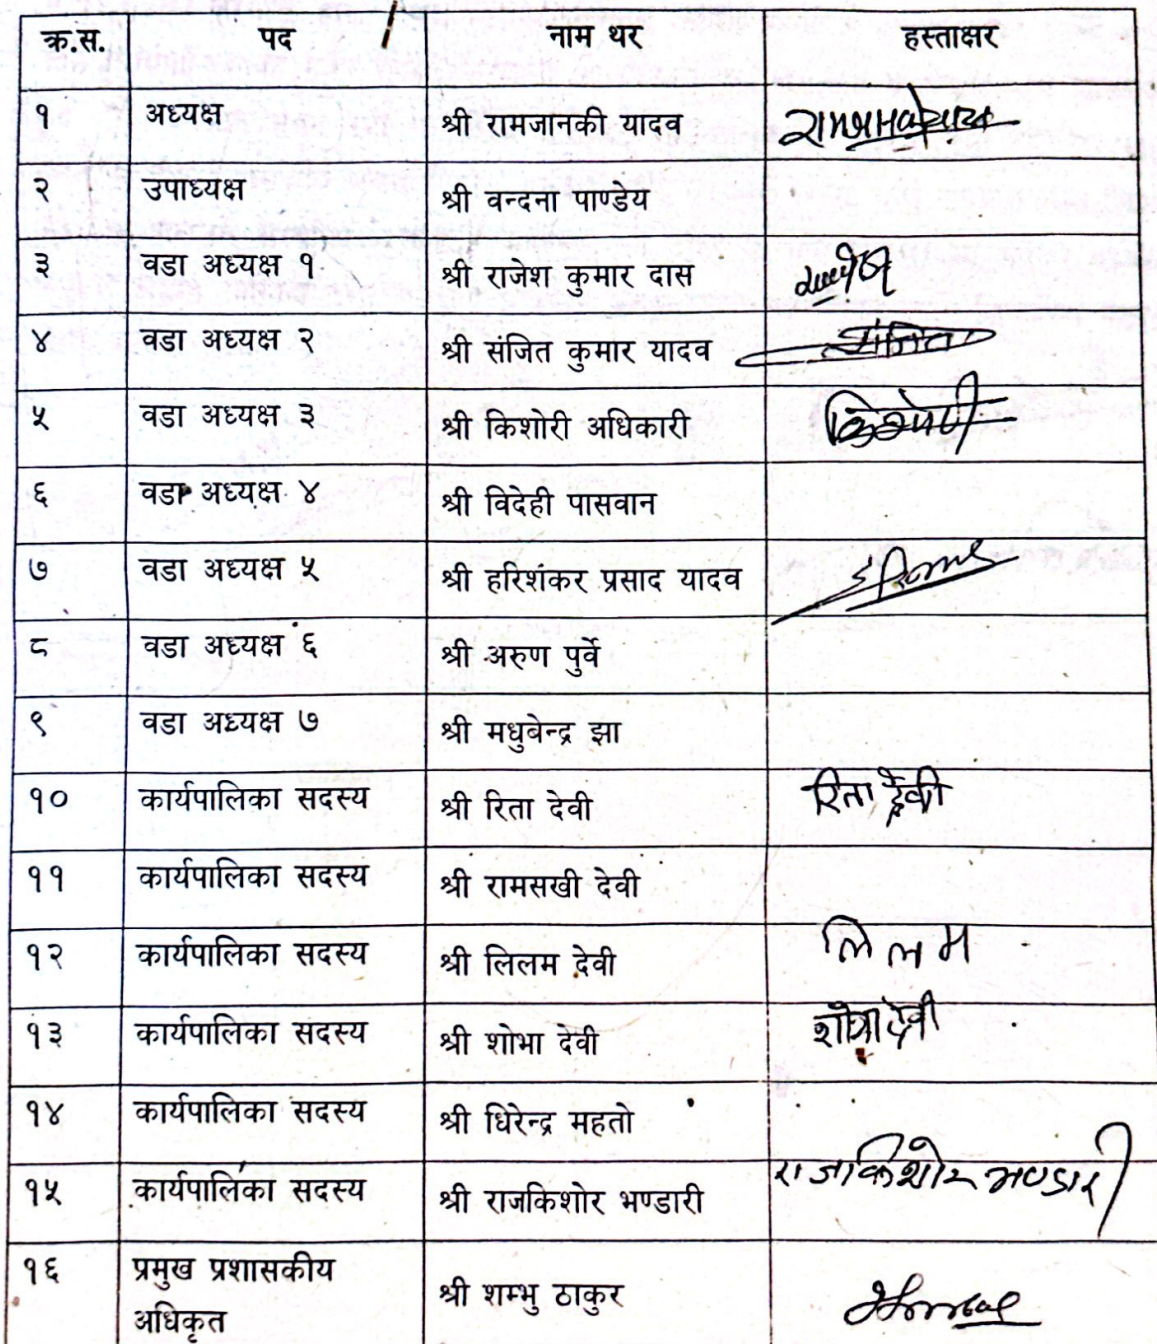 क्र.स. पद नाम थर हस्ताक्षर
१ अध्यक्ष श्री रामजानकी यादव
२ उपाध्यक्ष श्री वन्दना पाण्डेय
३ वडा अध्यक्ष १ श्री राजेश कुमार दास
४ वडा अध्यक्ष २ श्री संजित कुमार यादव संजित
५ वडा अध्यक्ष ३ श्री किशोरी अधिकारी किशोरी
६ वडा अध्यक्ष ४ श्री विदेही पासवान
७ वडा अध्यक्ष ५ श्री हरिशंकर प्रसाद यादव
८ वडा अध्यक्ष ६ श्री अरुण पुर्वे
९ वडा अध्यक्ष ७ श्री मधुबेन्द्र झा
१० कार्यपालिका सदस्य श्री रिता देवी रिता देवी
११ कार्यपालिका सदस्य श्री रामसखी देवी
१२ कार्यपालिका सदस्य श्री लिलम देवी लिलम
१३ कार्यपालिका सदस्य श्री शोभा देवी शोभा देवी
१४ कार्यपालिका सदस्य श्री धिरेन्द्र महतो
१५ कार्यपालिका सदस्य श्री राजकिशोर भण्डारी राजकिशोर भण्डारी
१६ प्रमुख प्रशासकीय श्री शम्भु ठाकुर
अधिकृत